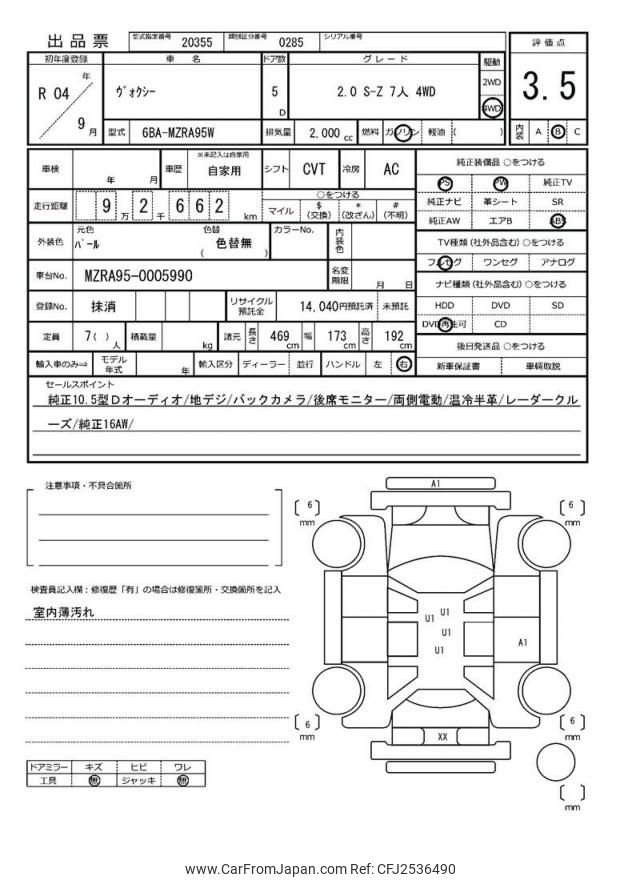 出品票 型式指定番号 20355 類別区分番号 0285 シリアル番号
評価点
3.5
初年度登録 車名 ドア数 グレード 駆動
R 04 年 9 月 ヴォクシー 5 D 2.0 S-Z 7人 4WD 2WD 4WD
型式 6BA-MZRA95W 排気量 2,000 cc 燃料 ガソリン 軽油 ( ) 内装 A B C
車検 年 月 車歴 ※未記入は自家用 自家用 シフト CVT 冷房 AC
走行距離 9 万 2 千 6 6 2 km ○をつける マイル $ (交換) * (改ざん) # (不明)
外装色 元色 パール 色替 ( 色替無 ) カラーNo. 内装色
車台No. MZRA95-0005990 名変期限 月 日
登録No. 抹消 リサイクル預託金 14,040円預託済 未預託
定員 7( ) 人 積載量 kg 諸元 長さ 469 cm 幅 173 cm 高さ 192 cm
輸入車のみ⇒ モデル年式 年 輸入区分 ディーラー 並行 ハンドル 左 右
純正装備品 ○をつける
PS PW 純正TV
純正ナビ 革シート SR
純正AW エアB ABS
TV種類 (社外品含む) ○をつける
フルセグ ワンセグ アナログ
ナビ種類 (社外品含む) ○をつける
HDD DVD SD
DVD再生可 CD
後日発送品 ○をつける
新車保証書 車輌取説
セールスポイント
純正10.5型Dオーディオ/地デジ/バックカメラ/後席モニター/両側電動/温冷半革/レーダークル
ーズ/純正16AW/
注意事項・不具合箇所
検査員記入欄：修復歴「有」の場合は修復箇所・交換箇所を記入
室内薄汚れ
ドアミラー キズ ヒビ ワレ
工具 無 ジャッキ 無
A1
( 6 ) mm
( 6 ) mm
U1 U1
U1
U1
A1
( 6 ) mm
( 6 ) mm
XX
( ) mm
www.CarFromJapan.com Ref: CFJ2536490